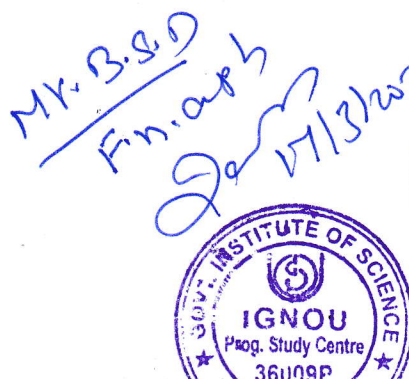 Mr. B.S.D
F.n.a.ph
17/3/20
GOVT. INSTITUTE OF SCIENCE
IGNOU
Prog. Study Centre
36009P